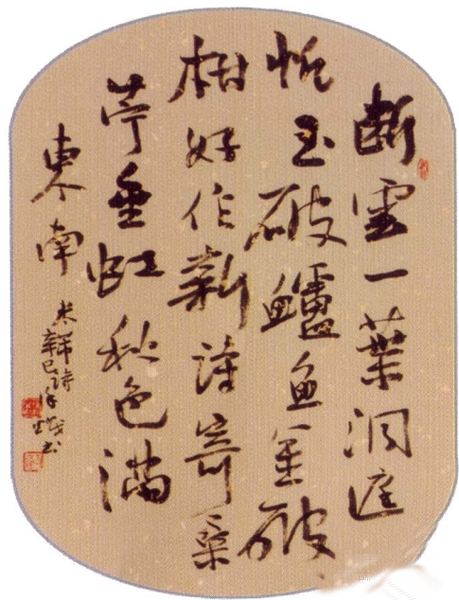 断雲一葉洞庭
帆玉破鱸鱼金破
柑好作新詩寄桑
苧垂虹秋色满
東南
米芾詩
辛巳 书